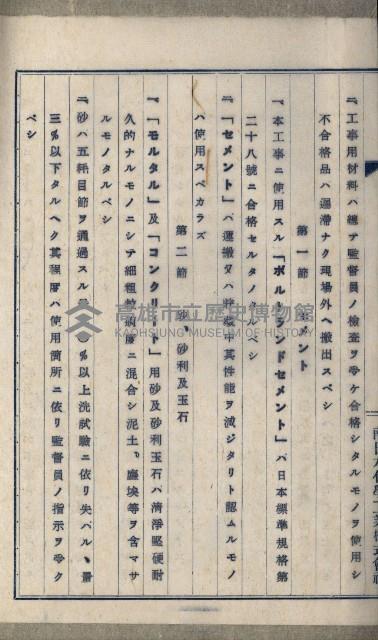 二、工事用材料ハ總テ監督員ノ檢査ヲ受ケ合格シタルモノヲ使用シ
不合格品ハ遲滯ナク現場外ヘ搬出スベシ
第一節 セメント
一、本工事ニ使用スル「ポルトランドセメント」ハ日本標準規格第
二十八號ニ合格セルタノ ルベシ
二、「セメント」ハ運搬又ハ貯藏中其性能ヲ減ジタリト認ムルモノ
ハ使用スベカラズ
第二節 砂、砂利及玉石
一、「モルタル」及「コンクリート」用砂及砂利玉石ハ淸淨堅硬耐
久的ナルモノニシテ細粗 ニ混合シ泥土、塵埃等ヲ含マサ
ルモノタルベシ
二、砂ハ五粍目篩ヲ通過スル %以上洗試驗ニ依リ失ハルヽ量
三%以下タルヘク其程度ハ使用箇所ニ依リ監督員ノ指示ヲ受ク
ベシ
高雄市立歷史博物館
KAOHSIUNG MUSEUM OF HISTORY